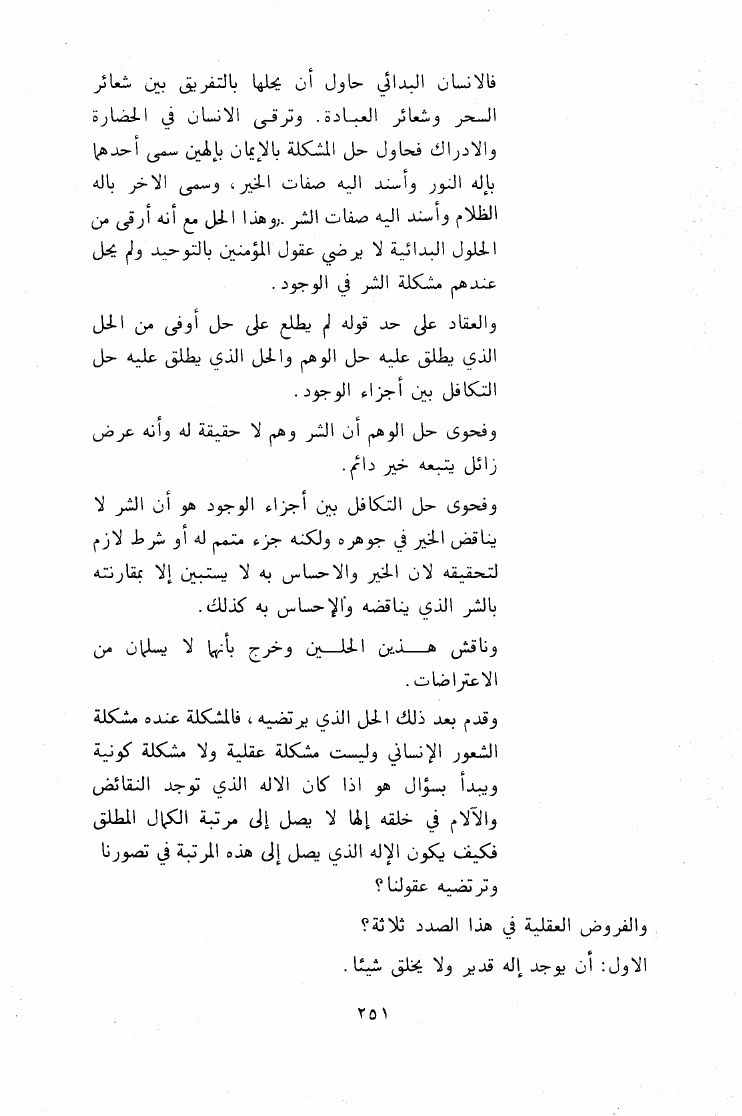 فالانسان البدائي حاول أن يحلها بالتفريق بين شعائر
السحر وشعائر العبادة. وترقى الانسان في الحضارة
والادراك فحاول حل المشكلة بالإيمان بإلهين سمى أحدهما
بإله النور وأسند اليه صفات الخير، وسمى الاخر باله
الظلام وأسند اليه صفات الشر. وهذا الحل مع أنه أرقى من
الحلول البدائية لا يرضي عقول المؤمنين بالتوحيد ولم يحل
عندهم مشكلة الشر في الوجود.
والعقاد على حد قوله لم يطلع على حل أوفى من الحل
الذي يطلق عليه حل الوهم والحل الذي يطلق عليه حل
التكافل بين أجزاء الوجود.
وفحوى حل الوهم أن الشر وهم لا حقيقة له وأنه عرض
زائل يتبعه خير دائم.
وفحوى حل التكافل بين أجزاء الوجود هو أن الشر لا
يناقض الخير في جوهره ولكنه جزء متمم له أو شرط لازم
لتحقيقه لان الخير والاحساس به لا يستبين إلا بمقارنته
بالشر الذي يناقضه والإحساس به كذلك.
وناقش هذين الحلين وخرج بأنهما لا يسلمان من
الاعتراضات.
وقدم بعد ذلك الحل الذي يرتضيه، فالمشكلة عنده مشكلة
الشعور الإنساني وليست مشكلة عقلية ولا مشكلة كونية
ويبدأ بسؤال هو اذا كان الاله الذي توجد النقائض
والآلام في خلقه إلها لا يصل إلى مرتبة الكمال المطلق
فكيف يكون الإله الذي يصل إلى هذه المرتبة في تصورنا
وترتضيه عقولنا؟
والفروض العقلية في هذا الصدد ثلاثة؟
الاول: أن يوجد إله قدير ولا يخلق شيئا.
٢٥١